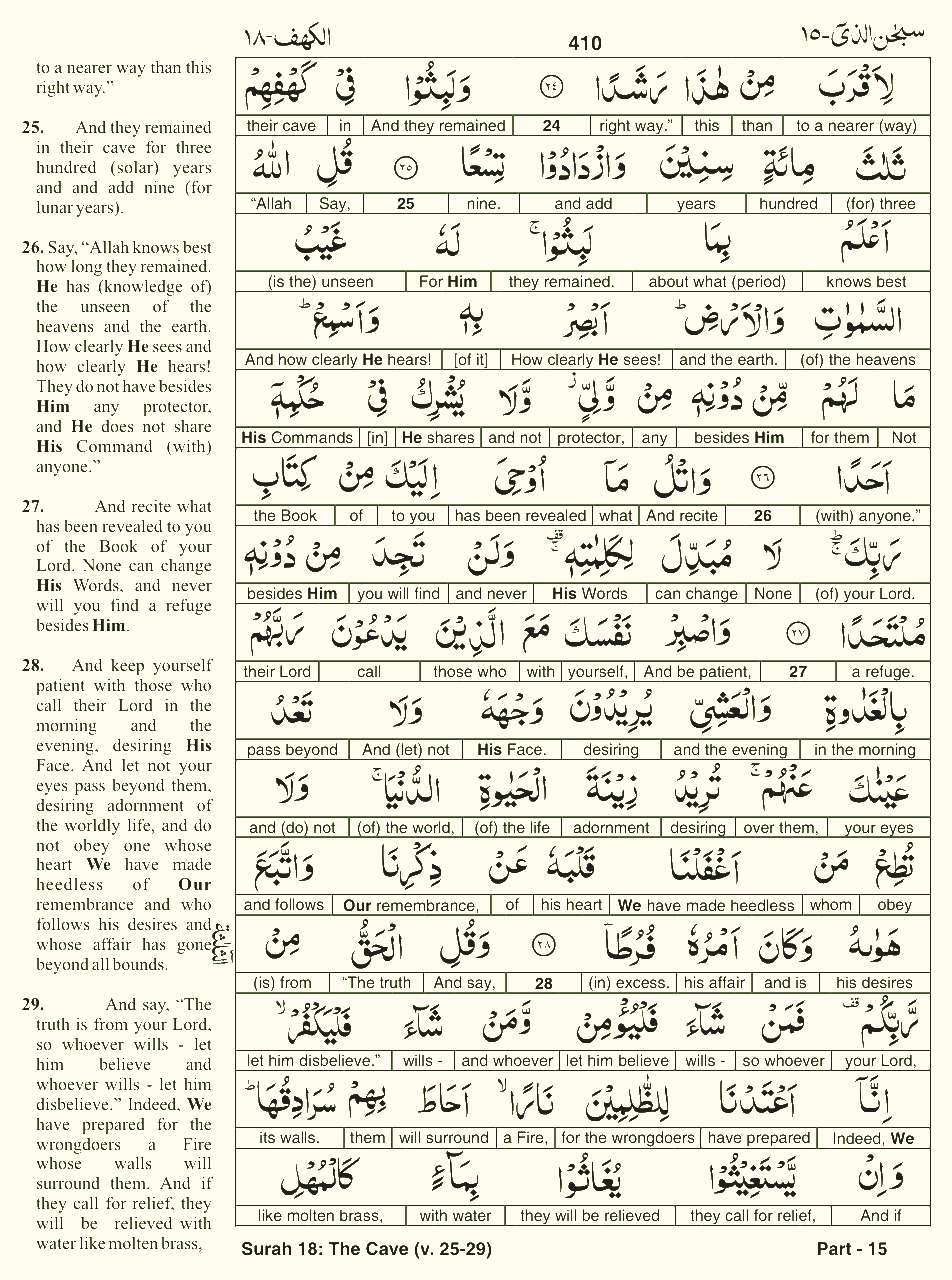 الكهف-١٨ 410 سبحن الذى-١٥
to a nearer way than this
right way.”
25. And they remained
in their cave for three
hundred (solar) years
and and add nine (for
lunar years).
26. Say, “Allah knows best
how long they remained.
He has (knowledge of)
the unseen of the
heavens and the earth.
How clearly He sees and
how clearly He hears!
They do not have besides
Him any protector,
and He does not share
His Command (with)
anyone.”
27. And recite what
has been revealed to you
of the Book of your
Lord. None can change
His Words, and never
will you find a refuge
besides Him.
28. And keep yourself
patient with those who
call their Lord in the
morning and the
evening, desiring His
Face. And let not your
eyes pass beyond them,
desiring adornment of
the worldly life, and do
not obey one whose
heart We have made
heedless of Our
remembrance and who
follows his desires and
whose affair has gone
beyond all bounds.
29. And say, “The
truth is from your Lord,
so whoever wills - let
him believe and
whoever wills - let him
disbelieve.” Indeed, We
have prepared for the
wrongdoers a Fire
whose walls will
surround them. And if
they call for relief, they
will be relieved with
water like molten brass,
لِاَقْرَبَ مِنْ هٰذَا رَشَدًا ﴿٢٤﴾ وَلَبِثُوْا فِيْ كَهْفِهِمْ
their cave in And they remained 24 right way.” this than to a nearer (way)
ثَلٰثَ مِائَةٍ سِنِيْنَ وَازْدَادُوْا تِسْعًا ﴿٢٥﴾ قُلِ اللّٰهُ
“Allah Say, 25 nine. and add years hundred (for) three
اَعْلَمُ بِمَا لَبِثُوْا ۚ لَهٗ غَيْبُ
(is the) unseen For Him they remained. about what (period) knows best
السَّمٰوٰتِ وَالْاَرْضِ ؕ اَبْصِرْ بِهٖ وَاَسْمِعْ ؕ
And how clearly He hears! [of it] How clearly He sees! and the earth. (of) the heavens
مَا لَهُمْ مِّنْ دُوْنِهٖ مِنْ وَّلِيٍّ ز وَّلَا يُشْرِكُ فِيْ حُكْمِهٖٓ
His Commands [in] He shares and not protector, any besides Him for them Not
اَحَدًا ﴿٢٦﴾ وَاتْلُ مَآ اُوْحِيَ اِلَيْكَ مِنْ كِتَابِ
the Book of to you has been revealed what And recite 26 (with) anyone.”
رَبِّكَ ؕۚ لَا مُبَدِّلَ لِكَلِمٰتِهٖ قف وَلَنْ تَجِدَ مِنْ دُوْنِهٖ
besides Him you will find and never His Words can change None (of) your Lord.
مُلْتَحَدًا ﴿٢٧﴾ وَاصْبِرْ نَفْسَكَ مَعَ الَّذِيْنَ يَدْعُوْنَ رَبَّهُمْ
their Lord call those who with yourself, And be patient, 27 a refuge.
بِالْغَدٰوةِ وَالْعَشِيِّ يُرِيْدُوْنَ وَجْهَهٗ وَلَا تَعْدُ
pass beyond And (let) not His Face. desiring and the evening in the morning
عَيْنٰكَ عَنْهُمْ ۚ تُرِيْدُ زِيْنَةَ الْحَيٰوةِ الدُّنْيَا ۚ وَلَا
and (do) not (of) the world, (of) the life adornment desiring over them, your eyes
تُطِعْ مَنْ اَغْفَلْنَا قَلْبَهٗ عَنْ ذِكْرِنَا وَاتَّبَعَ
and follows Our remembrance, of his heart We have made heedless whom obey
هَوٰىهُ وَكَانَ اَمْرُهٗ فُرُطًا ﴿٢٨﴾ وَقُلِ الْحَقُّ مِنْ
(is) from “The truth And say, 28 (in) excess. his affair and is his desires
رَّبِّكُمْ قف فَمَنْ شَآءَ فَلْيُؤْمِنْ وَّمَنْ شَآءَ فَلْيَكْفُرْ ۙ
let him disbelieve.” wills - and whoever let him believe wills - so whoever your Lord,
اِنَّآ اَعْتَدْنَا لِلظّٰلِمِيْنَ نَارًا ۙ اَحَاطَ بِهِمْ سُرَادِقُهَا ؕ
its walls. them will surround a Fire, for the wrongdoers have prepared Indeed, We
وَاِنْ يَّسْتَغِيْثُوْا يُغَاثُوْا بِمَآءٍ كَالْمُهْلِ
like molten brass, with water they will be relieved they call for relief, And if
الثلثة
Surah 18: The Cave (v. 25-29) Part - 15